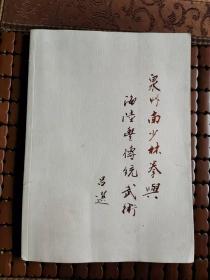 泉州南少林拳與
海陸豐傳統武術
吕莲